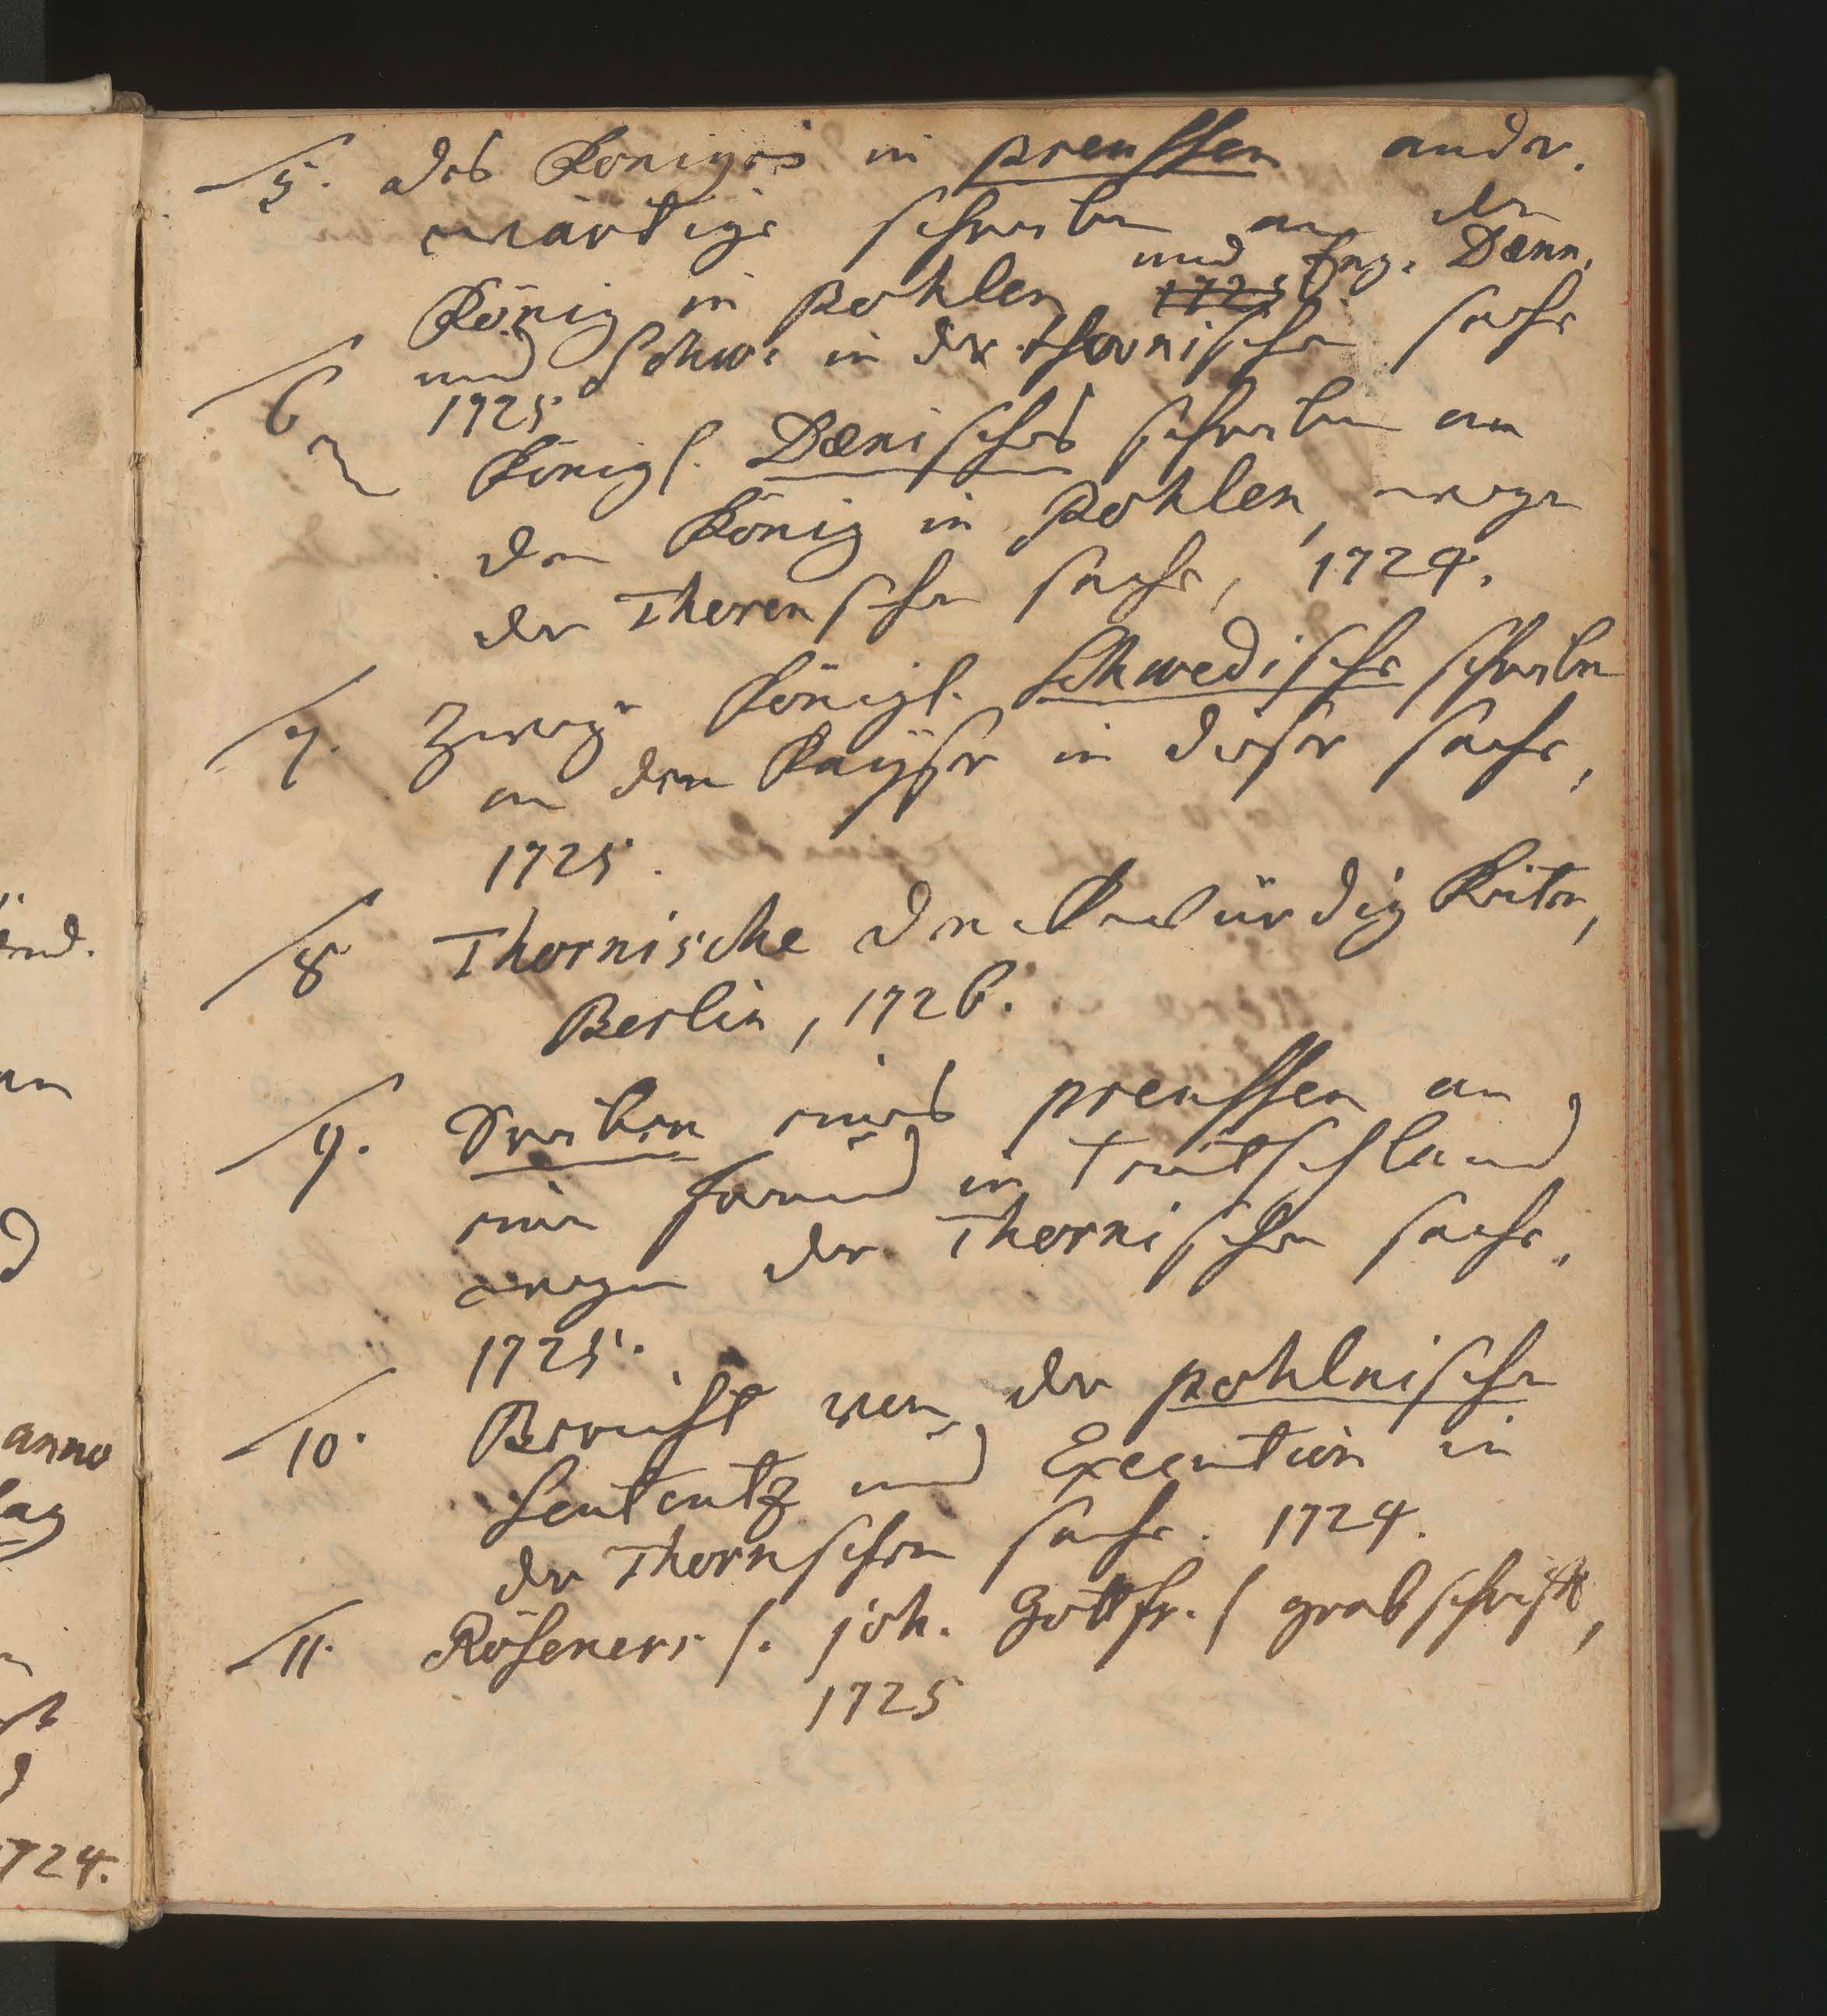 5. des Königes in preussen ander-
wärtige schreiben an den
König in pohlen und Eng. Dænn.
und Schw. in der thornischen sache
1725
6 Königl. Dænisches schreiben an
den König in Pohlen, wegen
der Thorenschen sache, 1724.
7. Zwey Königl. Schwedische schreiben
an den Kayser in dieser sache,
1725.
8 Thornische denckwürdigkeiten,
Berlin, 1726.
9. Schreiben eines preussen an
einen freund in Teutschland
wegen der Thornischen sache.
1725.
10. Bericht von der pohlnischen
Sententz und Execution in
der Thornschen sache. 1724.
11. Röseners /. joh. Gottfr. / grabschrifft,
1725
anno
1724.